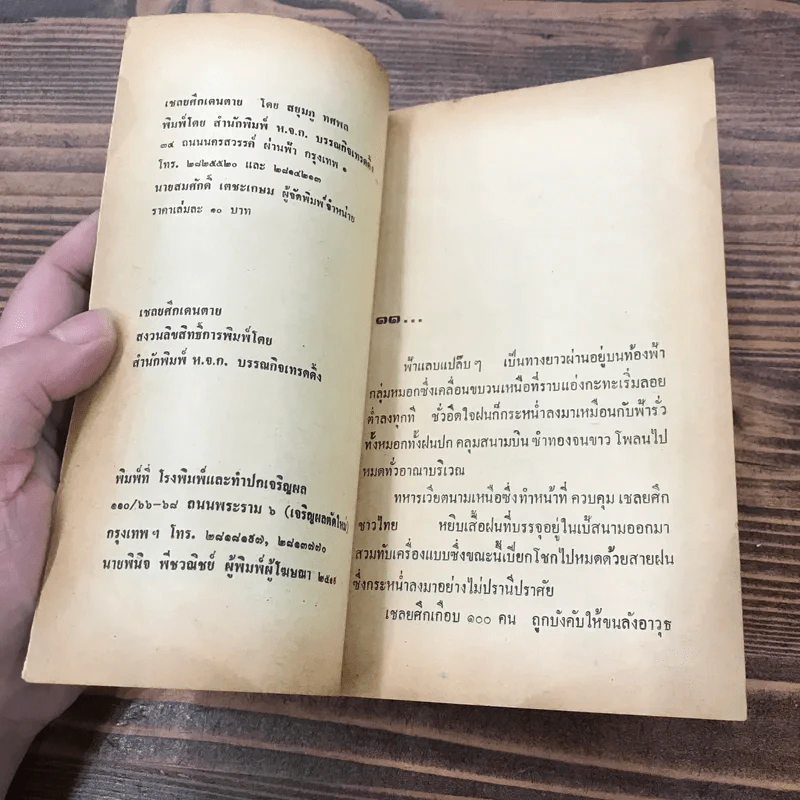 เชลยศึกเดนตาย โดย สยุมภู ทศพล
พิมพ์โดย สำนักพิมพ์ ห.จ.ก. บรรณกิจเทรดดิ้ง
๓๔ ถนนนครสวรรค์ ผ่านฟ้า กรุงเทพ ๑
โทร. ๒๘๒๕๕๒๐ และ ๒๘๑๔๒๑๓
นายสมศักดิ์ เตชะเกษม ผู้จัดพิมพ์จำหน่าย
ราคาเล่มละ ๑๐ บาท
เชลยศึกเดนตาย
สงวนลิขสิทธิ์การพิมพ์โดย
สำนักพิมพ์ ห.จ.ก. บรรณกิจเทรดดิ้ง
พิมพ์ที่ โรงพิมพ์และทำปกเจริญผล
๑๑๐/๖๖-๖๘ ถนนพระราม ๖ (เจริญผลตัดใหม่)
กรุงเทพฯ โทร. ๒๘๑๘๑๙๗, ๒๘๑๓๗๗๐
นายพินิจ พืชวณิชย์ ผู้พิมพ์ผู้โฆษณา
๑๑...
ฟ้าแลบแปล๊บๆ เป็นทางยาวผ่านอยู่บนท้องฟ้า
กลุ่มหมอกซึ่งเคลื่อนขบวนเหนือที่ราบแอ่งกะทะเริ่มลอย
ต่ำลงทุกที ชั่วอึดใจฝนก็กระหน่ำลงมาเหมือนกับฟ้ารั่ว
ทั้งหมอกทั้งฝนปก คลุมสนามบิน ซำทองจนขาว โพลนไป
หมดทั่วอาณาบริเวณ
ทหารเวียตนามเหนือซึ่งทำหน้าที่ ควบคุม เชลยศึก
ชาวไทย หยิบเสื้อฝนที่บรรจุอยู่ในเป้สนามออกมา
สวมทับเครื่องแบบซึ่งขณะนี้เปียกโชกไปหมดด้วยสายฝน
ซึ่งกระหน่ำลงมาอย่างไม่ปรานีปราศัย
เชลยศึกเกือบ ๑๐๐ คน ถูกบังคับให้ขนลังอาวุธ